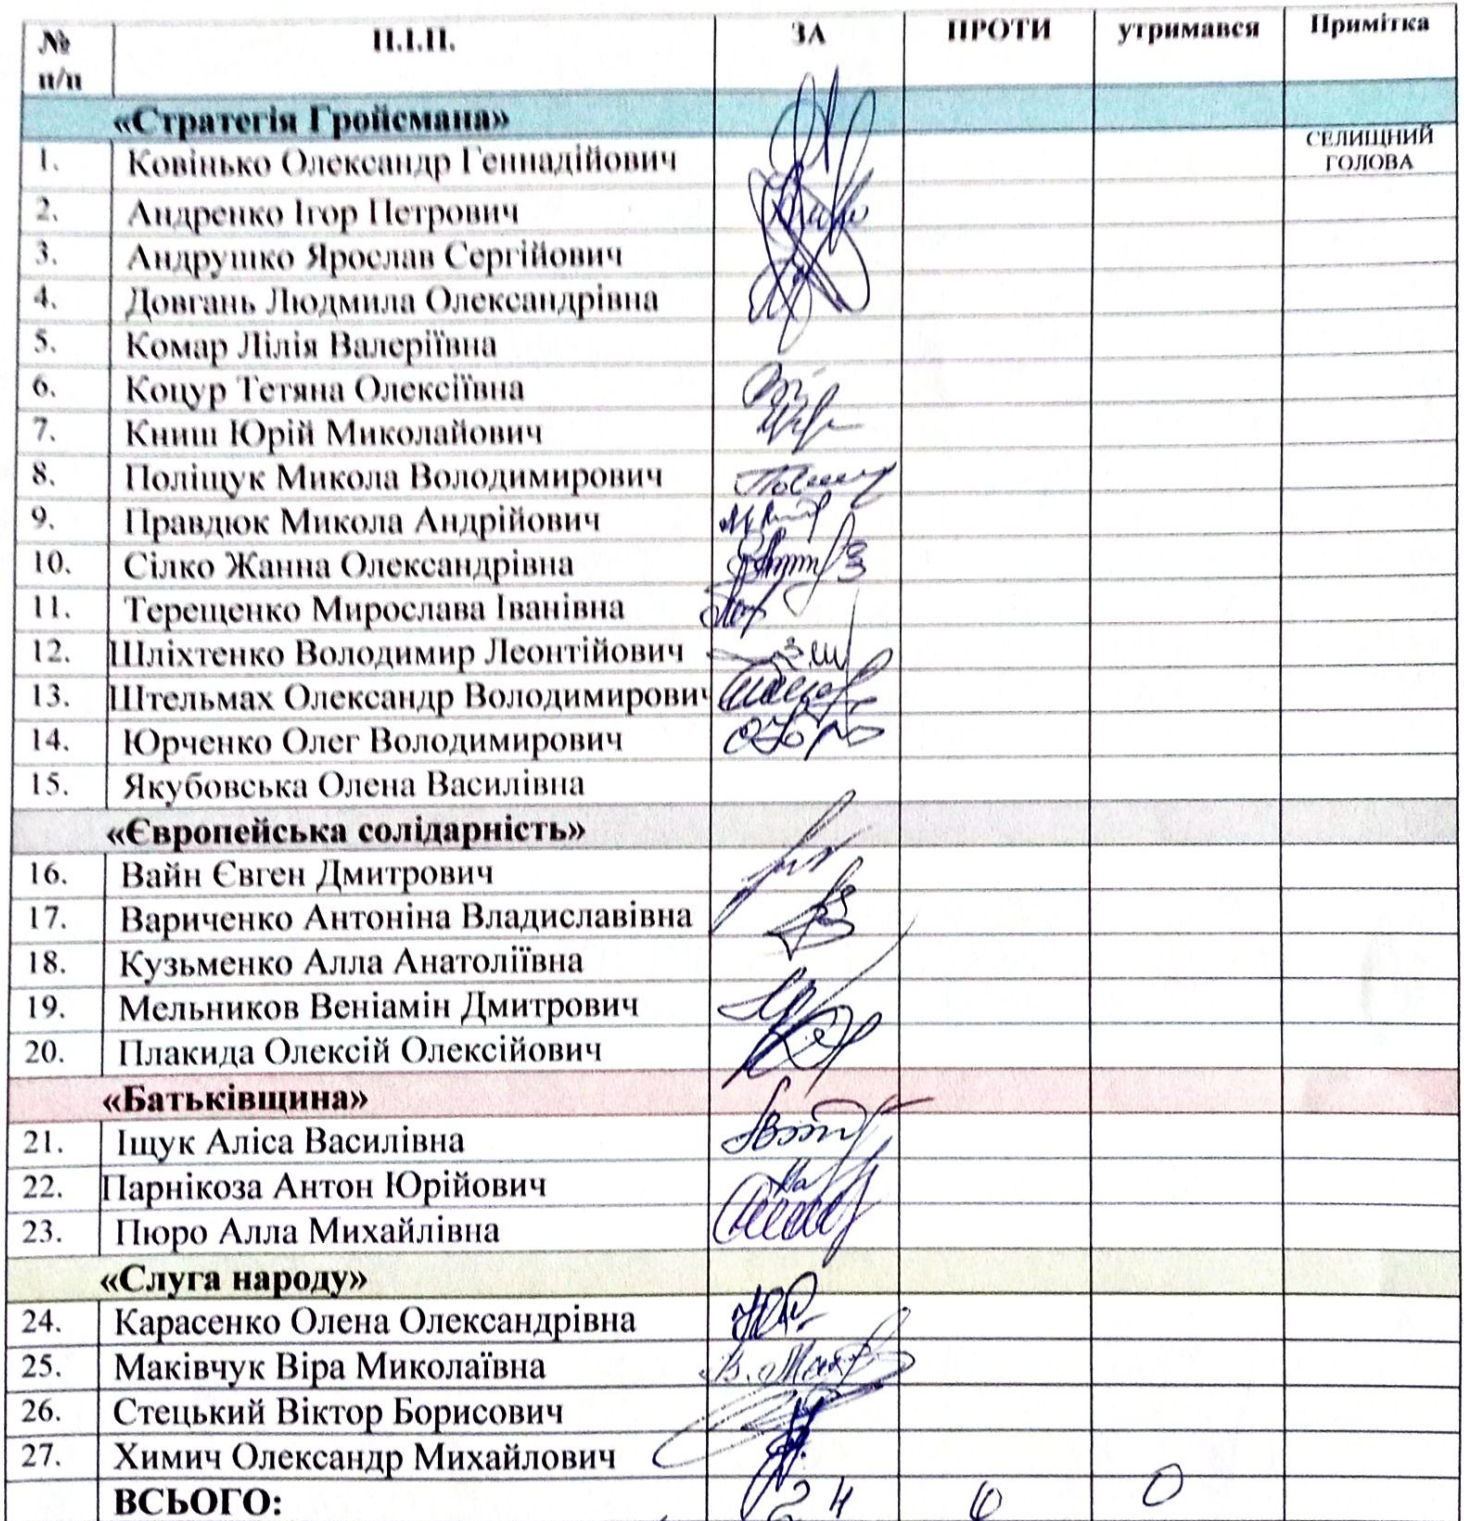 № п/п П.І.П. ЗА ПРОТИ утримався Примітка
«Стратегія Гройсмана»
1. Ковінько Олександр Геннадійович СЕЛИЩНИЙ ГОЛОВА
2. Андренко Ігор Петрович
3. Андрушко Ярослав Сергійович
4. Довгань Людмила Олександрівна
5. Комар Лілія Валеріївна
6. Коцур Тетяна Олексіївна
7. Книш Юрій Миколайович
8. Поліщук Микола Володимирович
9. Правдюк Микола Андрійович
10. Сілко Жанна Олександрівна
11. Терещенко Мирослава Іванівна
12. Шліхтенко Володимир Леонтійович
13. Штельмах Олександр Володимирович
14. Юрченко Олег Володимирович
15. Якубовська Олена Василівна
«Європейська солідарність»
16. Вайн Євген Дмитрович
17. Вариченко Антоніна Владиславівна
18. Кузьменко Алла Анатоліївна
19. Мельников Веніамін Дмитрович
20. Плакида Олексій Олексійович
«Батьківщина»
21. Іщук Аліса Василівна
22. Парнікоза Антон Юрійович
23. Пюро Алла Михайлівна
«Слуга народу»
24. Карасенко Олена Олександрівна
25. Маківчук Віра Миколаївна
26. Стецький Віктор Борисович
27. Химич Олександр Михайлович
ВСЬОГО: 24 0 0